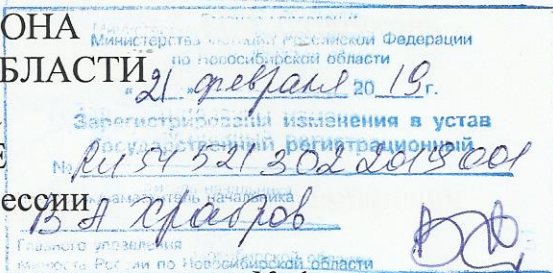 ОНА
Министерства Российской Федерации
по Новосибирской области
БЛАСТИ
"21" февраля 2019 г.
Зарегистрированы изменения в устав
Государственный регистрационный
Е
№ RU 545213022019001
заместитель начальника
ессии
В А Храбров
Главного управления
Минюста России по Новосибирской области